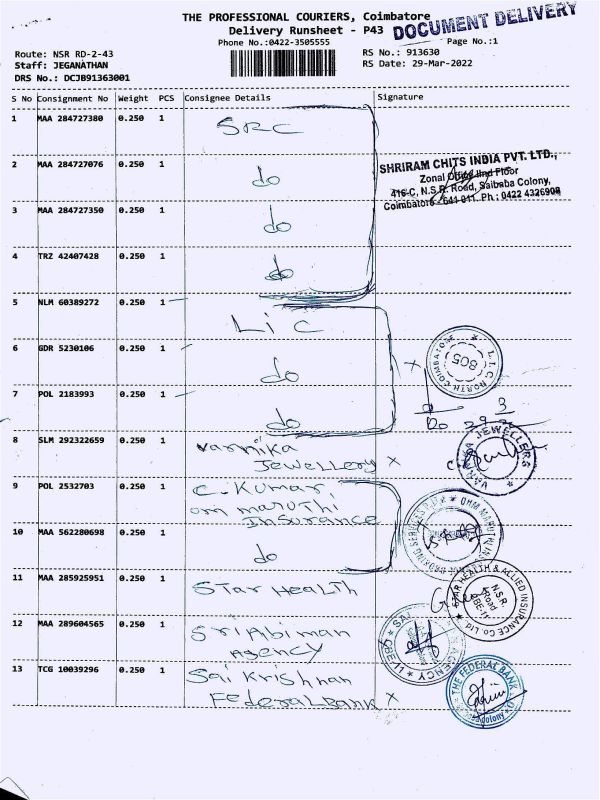 THE PROFESSIONAL COURIERS, Coimbatore
DOCUMENT DELIVERY
Delivery Runsheet - P43
Phone No.:0422-3505555
Page No.:1
Route: NSR RD-2-43
RS No.: 913630
Staff: JEGANATHAN
RS Date: 29-Mar-2022
DRS No.: DCJB91363001
S No Consignment No Weight PCS Consignee Details Signature
1 MAA 284727380 0.250 1 SRC
2 MAA 284727076 0.250 1 do
SHRIRAM CHITS INDIA PVT. LTD.,
Zonal Office IInd Floor
416-C, N.S.R. Road, Saibaba Colony,
Coimbatore - 641 011. Ph : 0422 4326908
3 MAA 284727350 0.250 1 do
4 TRZ 42407428 0.250 1 do
5 NLM 60389272 0.250 1 LIC
6 GDR 5230106 0.250 1 do
L.I.C. NORTH COIMBATORE
805
7 POL 2183993 0.250 1 do
8 SLM 292322659 0.250 1 varnika
Jewellery X
JEWELLERS
9 POL 2532703 0.250 1 C. Kumar,
om maruthi
Insurance
OHM MARUTHI
10 MAA 562280698 0.250 1 do
11 MAA 285925951 0.250 1 Star Health
STAR HEALTH & ALLIED INSURANCE Co. Ltd.
N.S.R
Road
CBE-11
12 MAA 289604565 0.250 1 Sri Abiman
Agency
AGENCY
CBE-11
13 TCG 10039296 0.250 1 Sai Krishnan
Federal Bank X
THE FEDERAL BANK